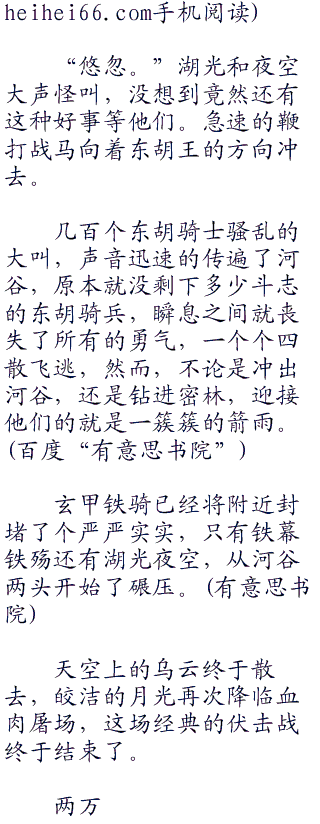 heihei66.com手机阅读)
“悠忽。”湖光和夜空
大声怪叫，没想到竟然还有
这种好事等他们。急速的鞭
打战马向着东胡王的方向冲
去。
几百个东胡骑士骚乱的
大叫，声音迅速的传遍了河
谷，原本就没剩下多少斗志
的东胡骑兵，瞬息之间就丧
失了所有的勇气，一个个四
散飞逃，然而，不论是冲出
河谷，还是钻进密林，迎接
他们的就是一簇簇的箭雨。
(百度“有意思书院”)
玄甲铁骑已经将附近封
堵了个严严实实，只有铁幕
铁殇还有湖光夜空，从河谷
两头开始了碾压。(有意思书
院)
天空上的乌云终于散
去，皎洁的月光再次降临血
肉屠场，这场经典的伏击战
终于结束了。
两万